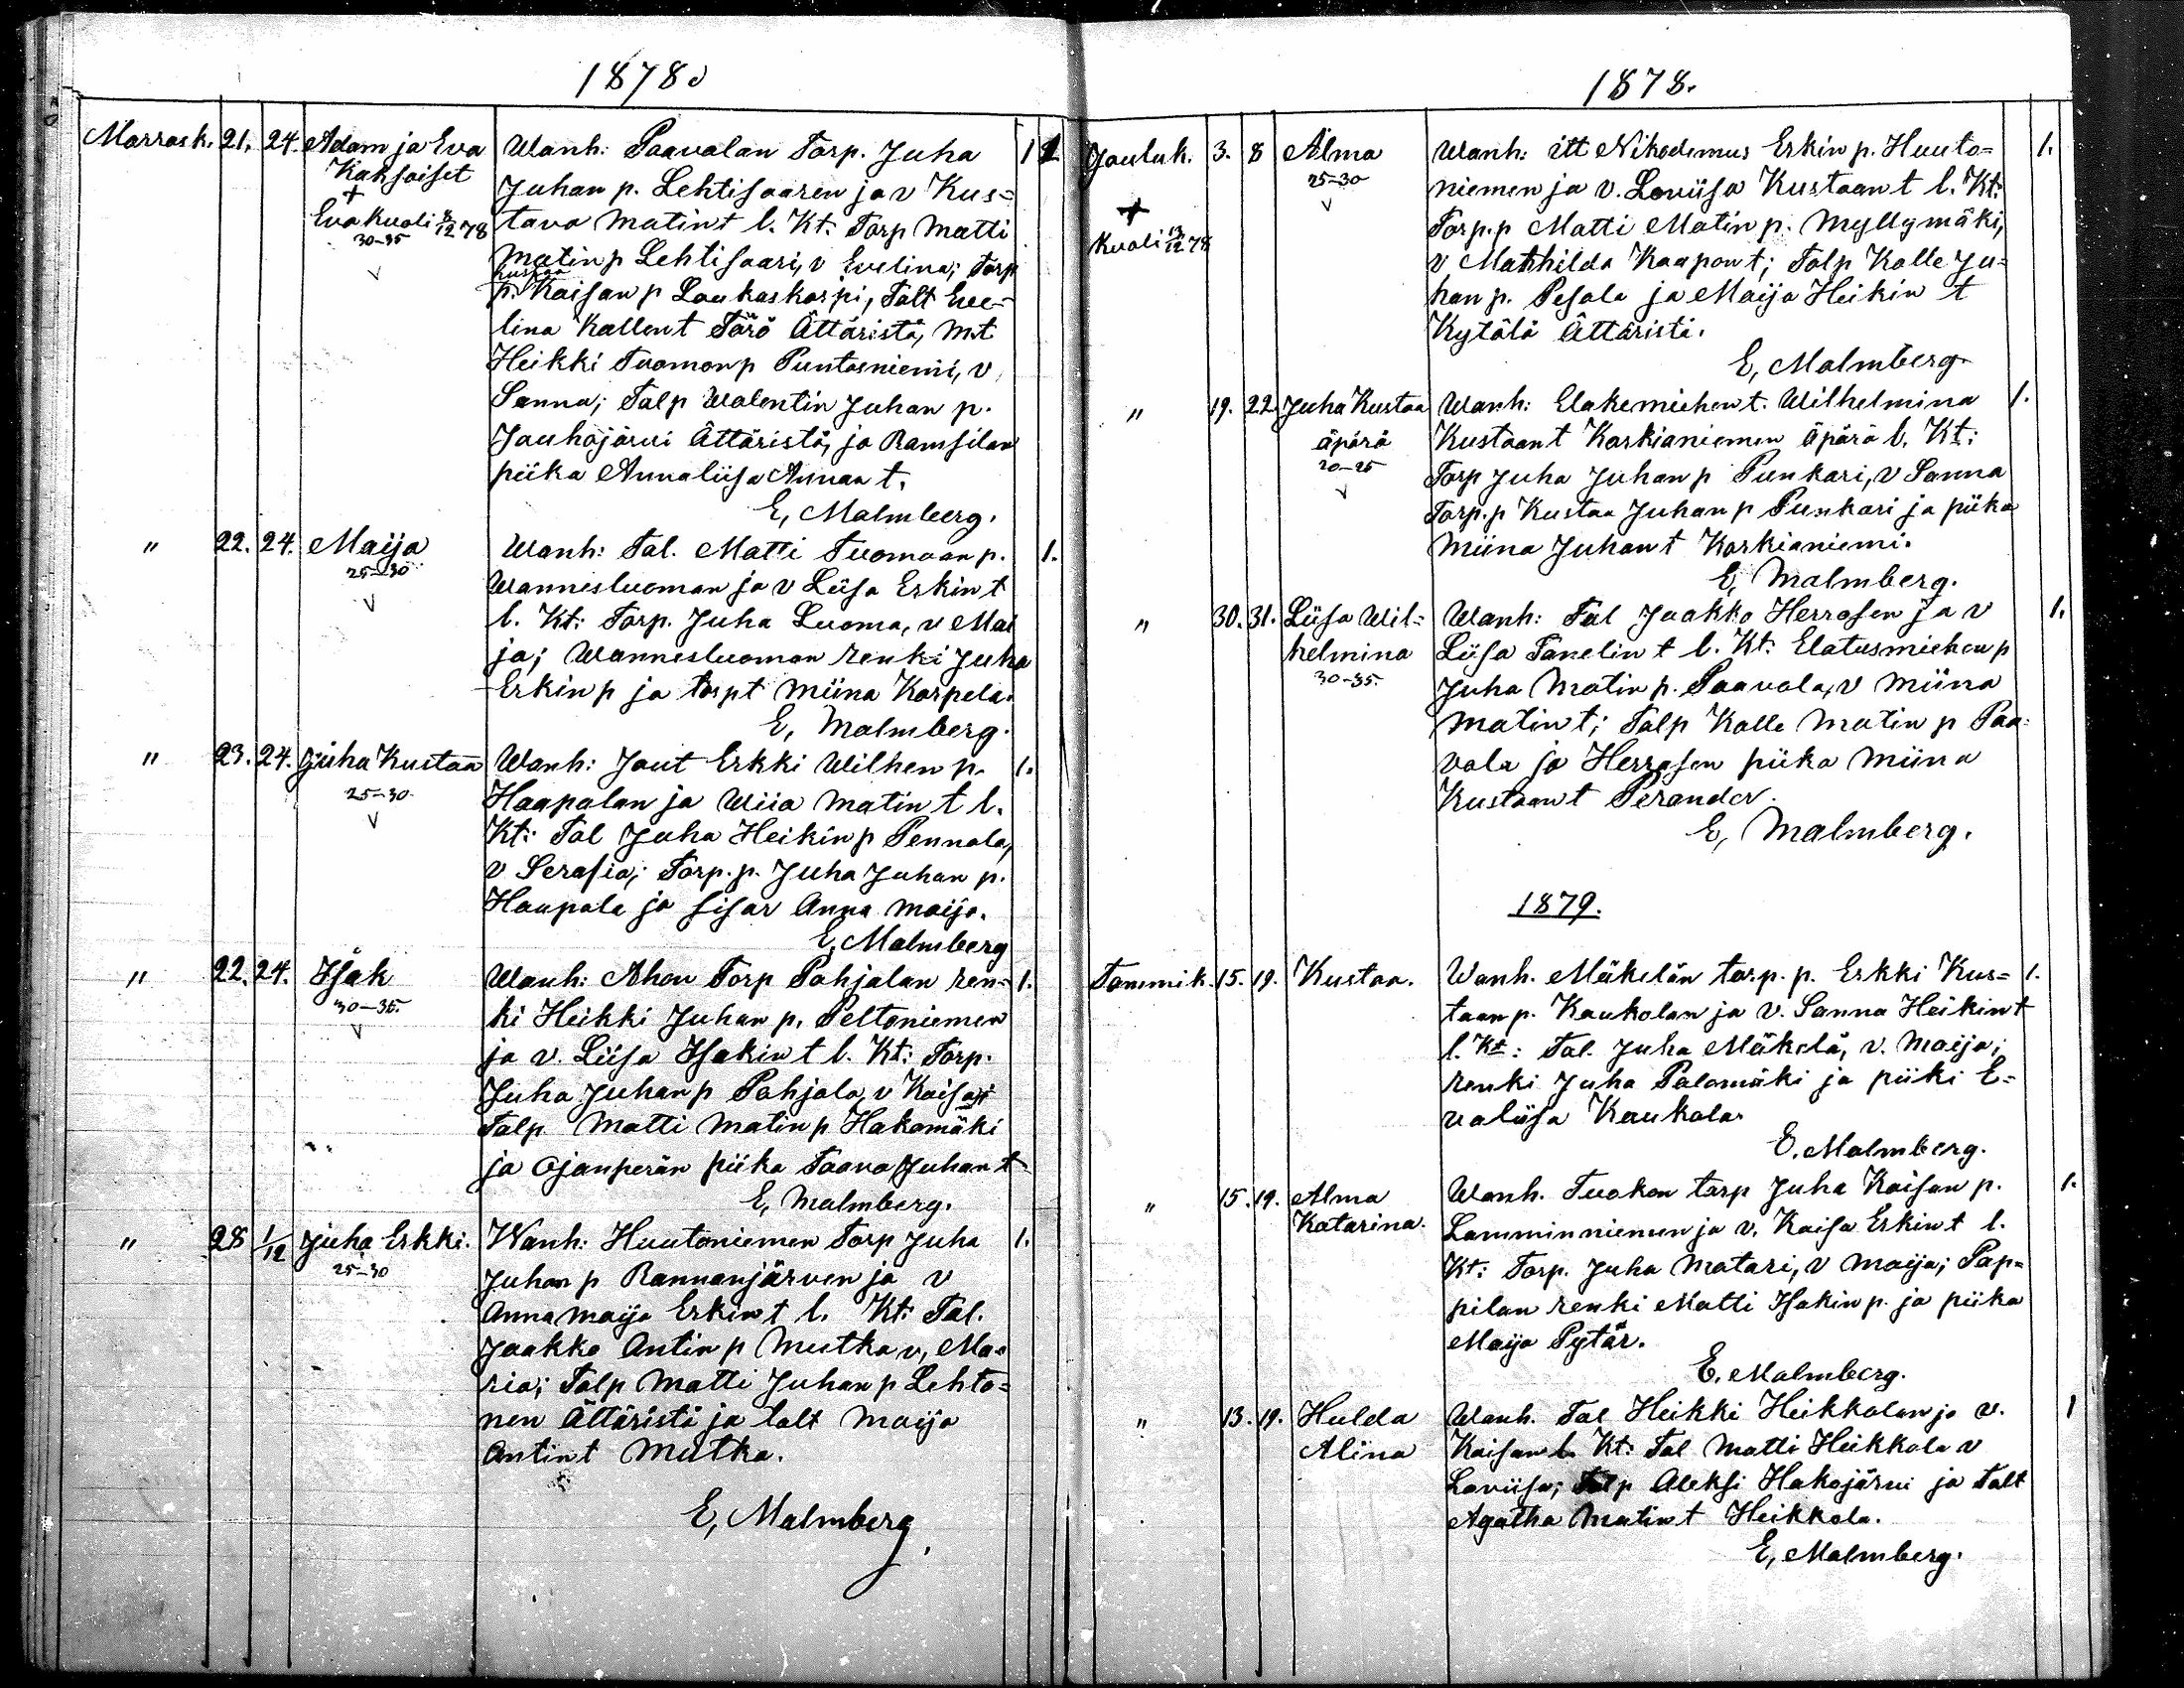 1878.
Marrask. 21. 24. Adam ja Eva Wanh: Paavolan Torp. Juha 1 1
Kaksoiset Juhan p. Lehtisaaren ja v Kus=
+
Eva kuoli 8/12 78 tava Matin t l. Kt: Torp Matti
30-35 Matin p Lehtisaari, v Evelina; Torp
Kustaa
p. Kaisan p Laukaskorpi, Talt Eve-
lina Kallen t Törö Ättäristä, Mt
Heikki Tuomon p Puntasniemi, v
Sanna; Talp Walentin Juhan p.
Jauhojärvi Ättäristä, ja Ramsilan
piika Annaliisa Annan t.
E, Malmberg.
" 22. 24. Maija Wanh: Tal. Matti Tuomaan p. 1.
25-30 Wannesluoman ja v Liisa Erkin t
l. Kt: Torp. Juha Luoma, v Mai
ja; Wannesluoman renki Juha
Erkin p ja torpt Miina Korpela.
E, Malmberg.
" 23. 24. Juha Kustaa Wanh: Jout Erkki Wilhen p. 1.
25-30 Haapalan ja Wiia Matin t l.
Kt: Tal Juha Heikin p Pennala,
v Serafia; Torp. p. Juha Juhan p.
Haapala ja sisar Anna Maija.
E, Malmberg
" 22. 24. Isak Wanh: Ahon Torp Pohjalan ren= 1.
30-35. ki Heikki Juhan p. Peltoniemen
ja v. Liisa Isakin t l. Kt: Torp.
Juha Juhan p Pohjola, v Kaisa;
Talp Matti Matin p Hakomäki
ja Ojanperän piika Taava Juhan t
E, Malmberg.
" 28 1/12 Juha Erkki. Wanh: Huutoniemen Torp Juha 1.
25-30 Juhan p Rannanjärven ja v
Anna Maija Erkin t l. Kt: Tal.
Jaakko Antin p Mutka v, Ma=
ria; Talp Matti Juhan p Lehto=
nen Ättäristä ja talt Maija
Antin t Mutka.
E, Malmberg,
1878.
Jouluk. 3. 8 Alma Wanh: itt Nikodemus Erkin p. Huuto= 1.
25-30 niemen ja v. Loviisa Kustaan t l. Kt:
+ Torp. p Matti Matin p. Myllymäki,
kuoli 13/12 78 v Mathilda Kaapon t; Talp Kalle Ju=
han p. Pesola ja Maija Heikin t
Kytölä Ättäristä.
E, Malmberg.
" 19. 22. Juha Kustaa Wanh: Elakemiehen t. Wilhelmina 1.
äpärä Kustaan t Karkianiemen äpärä l. Kt:
20-25 Torp Juha Juhan p Punkari, v Sanna
Torp. p Kustaa Juhan p Punkari ja piika
Miina Juhan t Karkianiemi.
E, Malmberg.
" 30. 31. Liisa Wil= Wanh: Tal Jaakko Herrasen ja v 1.
helmina Liisa Tanelin t l. Kt: Elatusmiehen p
30-35. Juha Matin p. Paavola, v Miina
Matin t; Talp Kalle Matin p Paa=
vola ja Herrasen piika Miina
Kustaan t Perander.
E, Malmberg.
1879.
Tammik. 15. 19. Kustaa. Wanh. Mäkelän torp. p. Erkki Kus= 1.
taan p. Kaukolan ja v. Sanna Heikin t
l. Kt: Tal. Juha Mäkelä, v. Maija;
renki Juha Palomäki ja piiki E=
valiisa Kaukola.
E. Malmberg.
" 15. 19. Alma Wanh. Tuokon torp Juha Kaisan p. 1.
Katarina. Lamminniemen ja v. Kaisa Erkin t l.
Kt: Torp. Juha Matari, v Maija; Pap=
pilan renki Matti Isakin p. ja piika
Maija Pytär.
E. Malmberg.
" 13. 19. Hulda Wanh. Tal Heikki Heikkolan ja v. 1
Alina Kaisan l. Kt: Tal Matti Heikkola v
Loviisa; Talp Aleksi Hakojärvi ja Talt
Agatha Matin t Heikkola.
E, Malmberg.